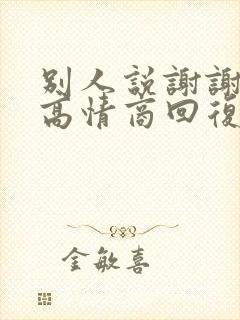 别人説謝謝
高情商回復
金敏喜